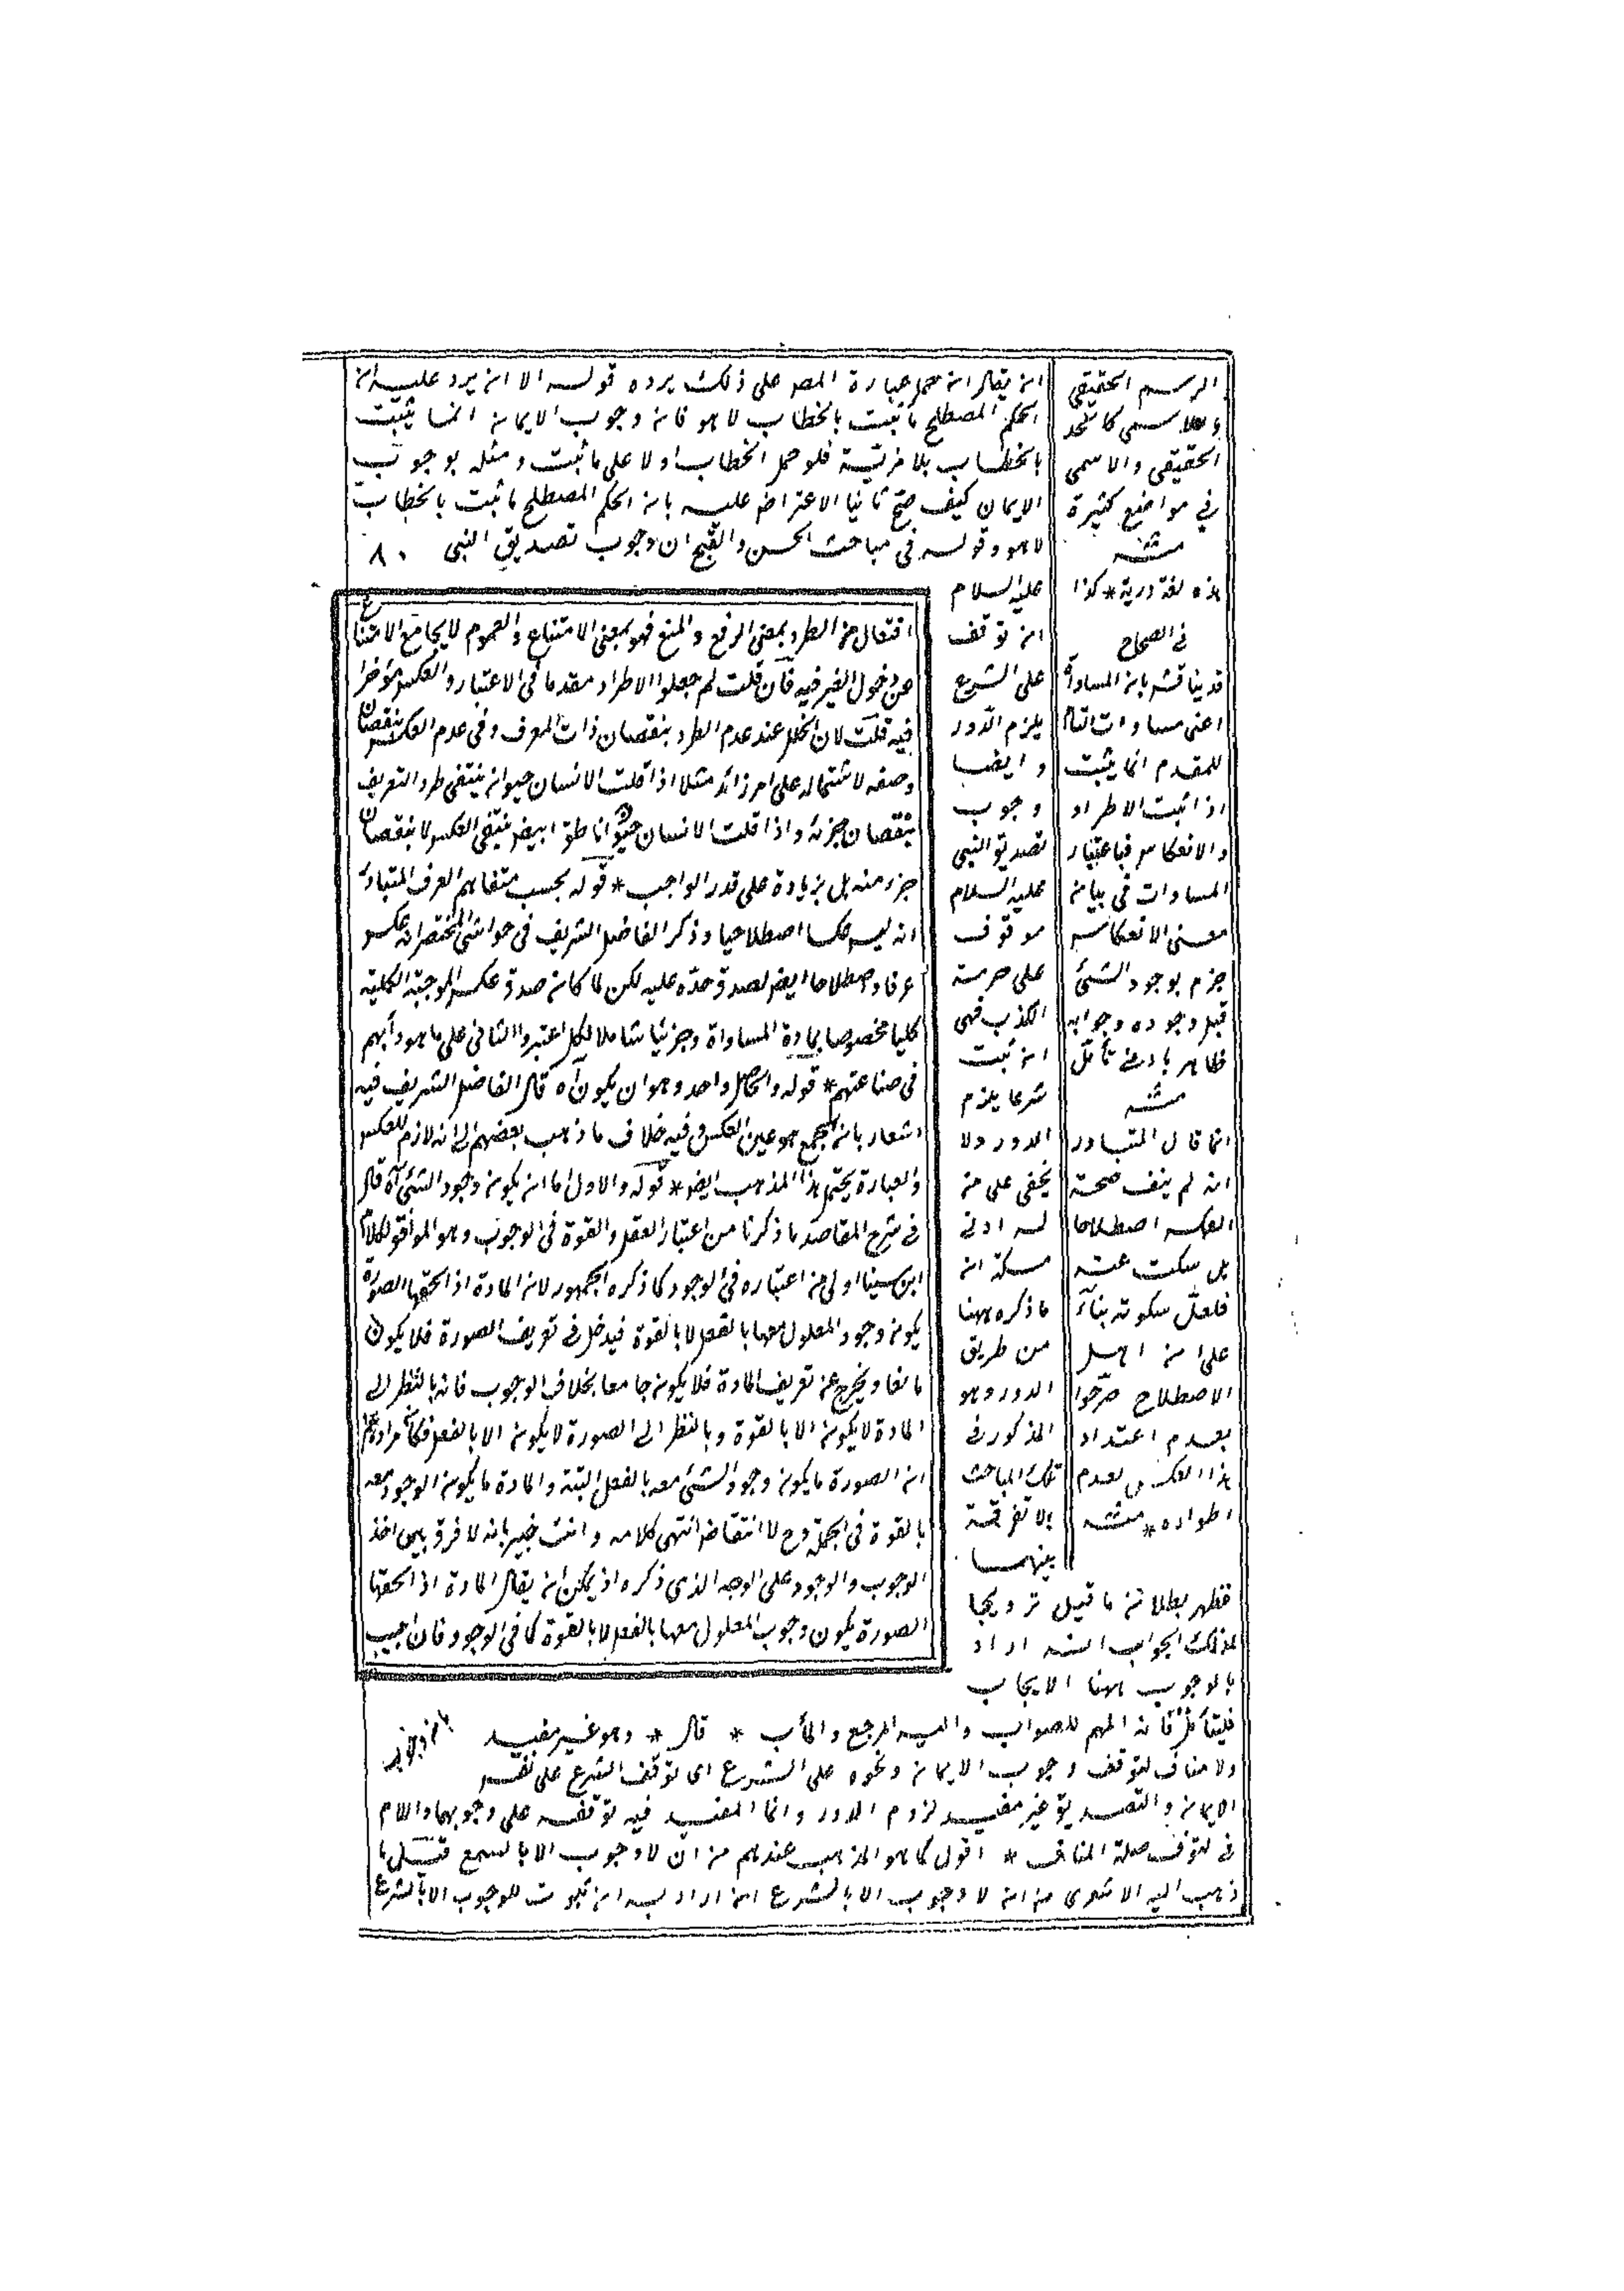 ان يقال ان حمل عبارة المصه على ذلك يرده قوله الا ان يرد عليه ان
الحكم المصطلح ما ثبت بالخطاب لا هو فان وجوب الايمان انما يثبت
بالخطاب بلا مزية فلو حمل الخطاب اولا على ما ثبت ومثله بوجوب
الايمان كيف صح ثانيا الاعتراض عليه بان الحكم المصطلح ما ثبت بالخطاب
لا هو وقوله فى مباحث الحسن والقبح ان وجوب تصديق النبى ٨٠
عليه السلام
ان توقف
على الشرع
يلزم الدور
وايضا
وجوب
تصديق النبى
عليه السلام
موقوف
على حرمة
الكذب فهى
ان ثبت
شرعا يلزم
الدور ولا
يخفى على من
له ادنى
مسكة ان
ما ذكره ههنا
من طريق
الدور وهو
المذكور فى
تلك المباحث
بلا تفرقة
بينهما
فظهر بطلان ما قيل ترويجا
لذلك الجواب انه اراد
بالوجوب ههنا الايجاب
فليتأمل فانه الملهم للصواب واليه المرجع والمأب * قال * وهو غير مفيد
ولا مناف لتوقف وجوب الايمان ونحوه على الشرع اى توقف الشرع على نفس
الايمان والتصديق غير مفيد لزوم الدور وانما المفيد فيه توقفه على وجوبهما واللام
فى لتوقف صلة المنافى * اقول كما هو المذهب عندهم من ان لا وجوب الا بالسمع
ذهب اليه الاشعرى من ان لا وجوب الا بالشرع ان اراد به ان ثبوت الوجوب الا بالشرع
افتعال من الطرد بمعنى الرفع والمنع فهو بمعنى الامتناع والعموم لا يجامع الامتناع
عن دخول الغير فيه فان قلت لم جعلوا الاطراد مقدما فى الاعتبار والعكس مؤخرا
فيه قلت لان الخلل عند عدم الطرد بنقصان ذات المعرف وفى عدم العكس بنقصان
وصفه لاشتماله على امر زائد مثلا اذا قلت الانسان حيوان ينتفى طرد التعريف
بنقصان جزئه واذا قلت الانسان حيوان ناطق ابيض ينتفى العكس لا بنقصان
جزء منه بل بزيادة على قدر الواجب * قوله بحسب متفاهم العرف المتبادر
انه ليس عكسا اصطلاحيا وذكر الفاضل الشريف فى حواشى المختصر انه عكس
عرفا واصطلاحا ايضا لصدق حده عليه لكن لما كان صدق عكس الموجبة الكلية
كليا مخصوصا بمادة المساواة وجزئيا شاملا للكل اعتبروا الثانى على ما هو دأبهم
فى صناعتهم * قوله والحاصل واحد وهو ان يكون آه قال الفاضل الشريف فيه
اشعار بان الجمع هو عين العكس وفيه خلاف ما ذهب بعضهم الى انه لازم للعكس
والعبارة يحتمل هذا المذهب ايضا * قوله والاول اما ان يكون وجود الشئ آه قال
فى شرح المقاصد ما ذكرنا من اعتبار الفعل والقوة فى الوجوب وهو الموافق لكلام
ابن سينا اولى من اعتباره فى الوجود كما ذكره الجمهور لان المادة اذا الحقها الصورة
يكون وجود المعلول معها بالفعل لا بالقوة فيدخل فى تعريف الصورة فلا يكون
مانعا ويخرج عن تعريف المادة فلا يكون جامعا بخلاف الوجوب فانه بالنظر الى
المادة لا يكون الا بالقوة وبالنظر الى الصورة لا يكون الا بالفعل فكأن مرادهم
ان الصورة ما يكون وجود الشئ معه بالفعل البتة والمادة ما يكون الوجود معه
بالقوة فى الجملة وح لا انتقاض انتهى كلامه وانت خبير بانه لا فرق بين اخذ
الوجوب والوجود على الوجه الذى ذكره اذ يمكن ان يقال المادة اذا الحقها
الصورة يكون وجوب المعلول معها بالفعل لا بالقوة كما فى الوجود فان اجيب
الرسم الحقيقى
والاسمى كالحد
الحقيقى والاسمى
فى مواضع كثيرة
منه
هذه لغة درية * كذا
فى الصحاح
قد يناقش بان المساواة
اعنى مساوات التالى
للمقدم انما يثبت
اذا ثبت الاطراد
والانعكاس فباعتبار
المساوات فى بيان
معنى الانعكاس
جزم بوجود الشئ
قبل وجوده وجوابه
ظاهر بادنى تأمل
منه
انما قال المتبادر
انه لم ينف صحة
العكس اصطلاحا
بل سكت عنه
فلعل سكوته بناء
على ان اهل
الاصطلاح صرحوا
بعدم اعتداد
هذا العكس لعدم
اطراده * منه